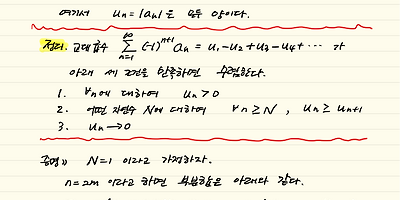 여기서 uₙ = |aₙ| 은 모두 양이다.
정리. 교대급수 ∑_{n=1}^{∞} (-1)^{n+1} aₙ = u₁ - u₂ + u₃ - u₄ + ⋯ 가
아래 세 조건을 만족하면 수렴한다.
1. ∀n에 대하여 uₙ > 0
2. 어떤 자연수 N에 대하여 ∀n ≥ N , uₙ ≥ uₙ₊₁
3. uₙ → 0
증명») N=1 이라고 가정하자.
n=2m 이라고 하면 부분합은 아래와 같다.